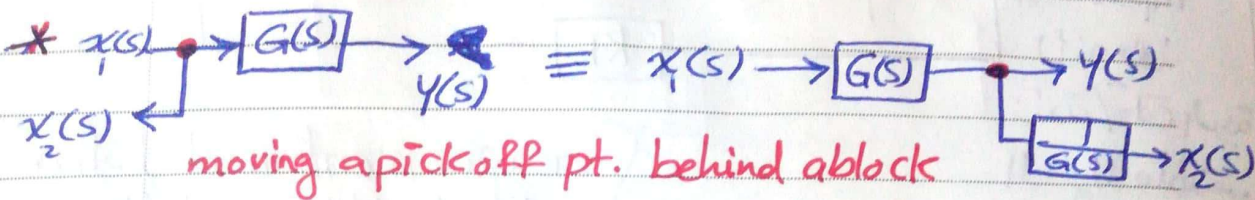 * X₁(s) G(s) Y(s) ≡ X₁(s) G(s) Y(s)
X₂(s) 1/G(s) X₂(s)
moving a pickoff pt. behind a block